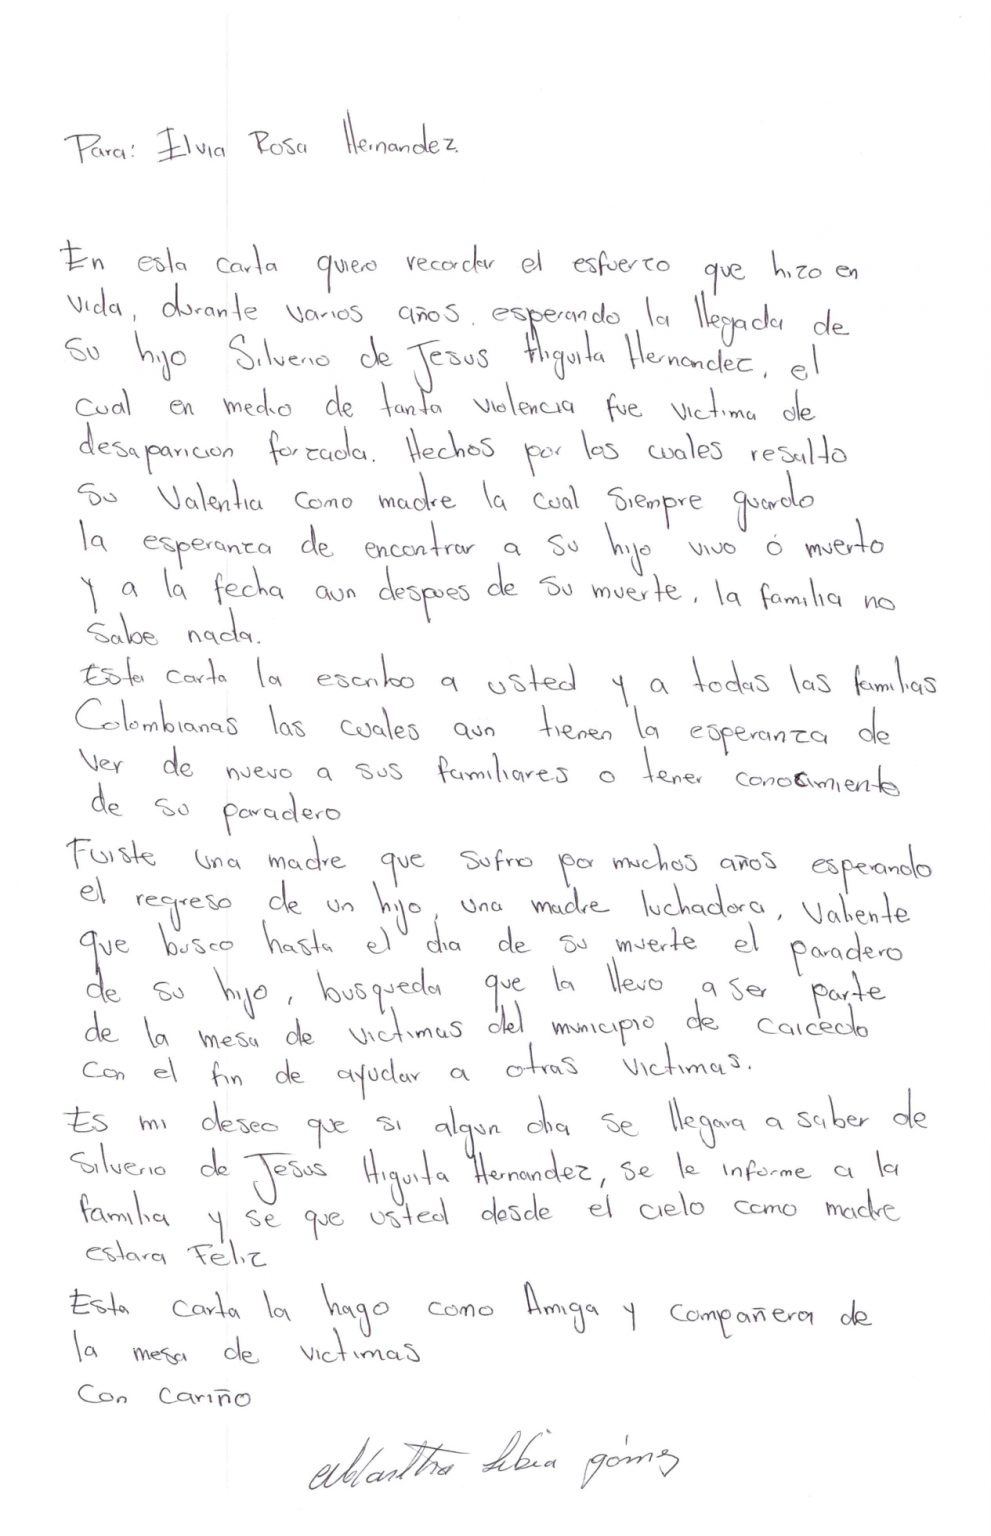 Para: Elvia Rosa Hernandez.
En esta carta quiero recordar el esfuerzo que hizo en
vida, durante varios años. esperando la llegada de
su hijo Silverio de Jesus Higuita Hernandez, el
cual en medio de tanta violencia fue victima de
desaparicion forzada. Hechos por los cuales resalto
su Valentia como madre la cual siempre guardo
la esperanza de encontrar a su hijo vivo ó muerto
y a la fecha aun despues de su muerte, la familia no
sabe nada.
Esta carta la escribo a usted y a todas las familias
Colombianas las cuales aun tienen la esperanza de
ver de nuevo a sus familiares o tener conocimiento
de su paradero
Fuiste una madre que sufrio por muchos años esperando
el regreso de un hijo, una madre luchadora, Valiente
que busco hasta el dia de su muerte el paradero
de su hijo, busqueda que la llevo a ser parte
de la mesa de victimas del municipio de Caicedo
con el fin de ayudar a otras victimas.
Es mi deseo que si algun dia se llegara a saber de
Silverio de Jesus Higuita Hernandez, se le informe a la
familia y se que usted desde el cielo como madre
estara Feliz
Esta carta la hago como Amiga y compañera de
la mesa de victimas
Con cariño
gómez